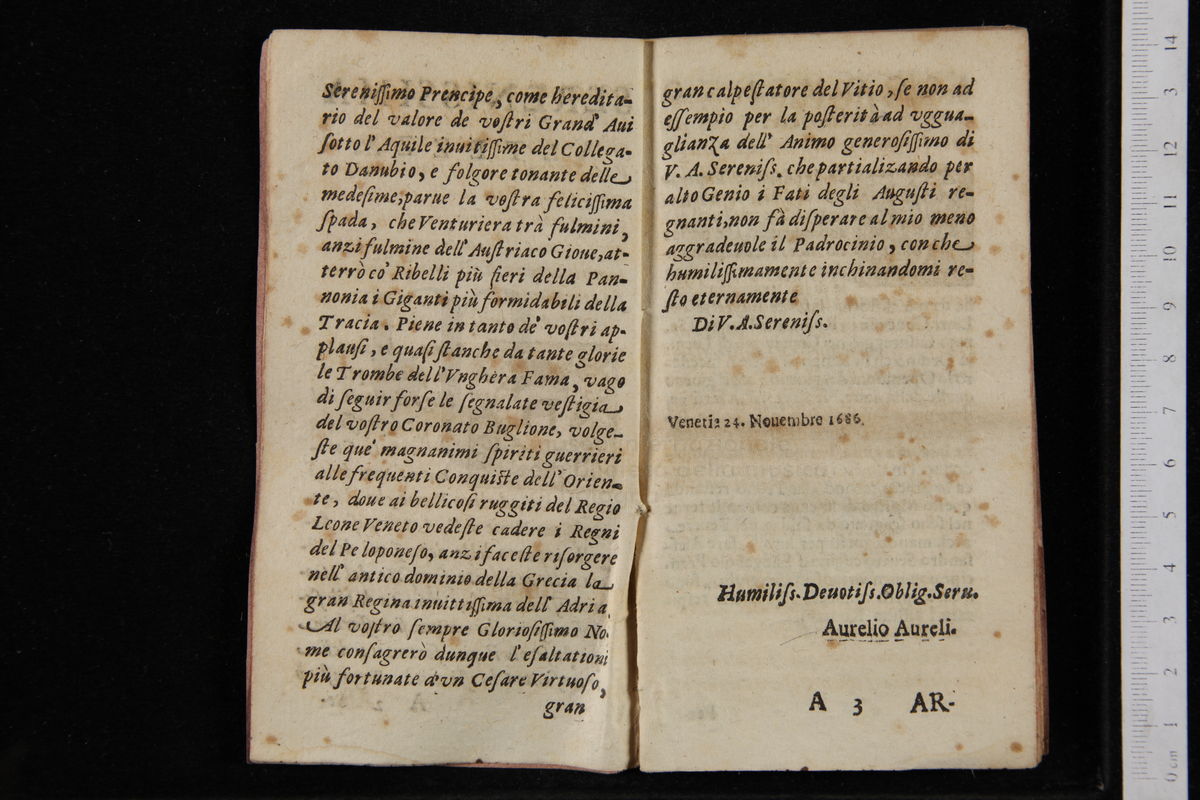 Sereniſſimo Prencipe, come heredita-
rio del valore de voſtri Grand' Aui
ſotto l'Aquile inuitiſſime del Collega-
to Danubio, e folgore tonante delle
medeſime, parue la voſtra feliciſſima
ſpada, che Venturiera trà fulmini,
anzi fulmine dell'Auſtriaco Gioue, at-
terrò co' Ribelli più fieri della Pan-
nonia i Giganti più formidabili della
Tracia. Piene in tanto de' voſtri ap-
plauſi, e quaſi ſtanche da tante glorie
le Trombe dell'Vnghera Fama, vago
di ſeguir forſe le ſegnalate veſtigia
del voſtro Coronato Buglione, volge-
ſte que' magnanimi ſpiriti guerrieri
alle frequenti Conquiſte dell'Orien-
te, doue ai bellicoſi ruggiti del Regio
Leone Veneto vedeſte cadere i Regni
del Peloponeſo, anzi faceſte riſorgere
nell'antico dominio della Grecia la
gran Regina inuittiſſima dell'Adria
Al voſtro ſempre Glorioſiſſimo No-
me conſagrerò dunque l'eſaltationi
più fortunate d'vn Ceſare Virtuoſo,
gran
gran calpeſtatore del Vitio, ſe non ad
eſſempio per la poſterità ad vggua-
glianza dell' Animo generoſiſſimo di
V. A. Sereniſs. che partializando per
alto Genio i Fati degli Auguſti re-
gnanti, non fà diſperare al mio meno
aggradeuole il Padrocinio, con che
humiliſſimamente inchinandomi re-
ſto eternamente
Di V. A. Sereniſs.
Venetia 24. Nouembre 1686.
Humiliſs. Deuotiſs. Oblig. Seru.
Aurelio Aureli.
A 3 AR-
0 cm 1 2 3 4 5 6 7 8 9 10 11 12 3 14